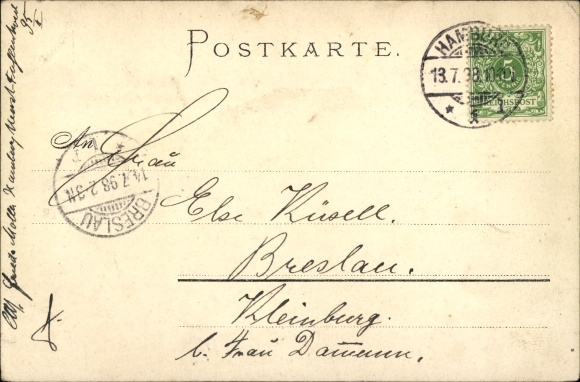 POSTKARTE.
HAMBURG
13.7.98.10-11
1
5
REICHSPOST
An Frau
BRESLAU
14.7.98.2-3N
Else Küsell.
Breslau.
Kleinburg.
b. Frau Damann.
Hamburg